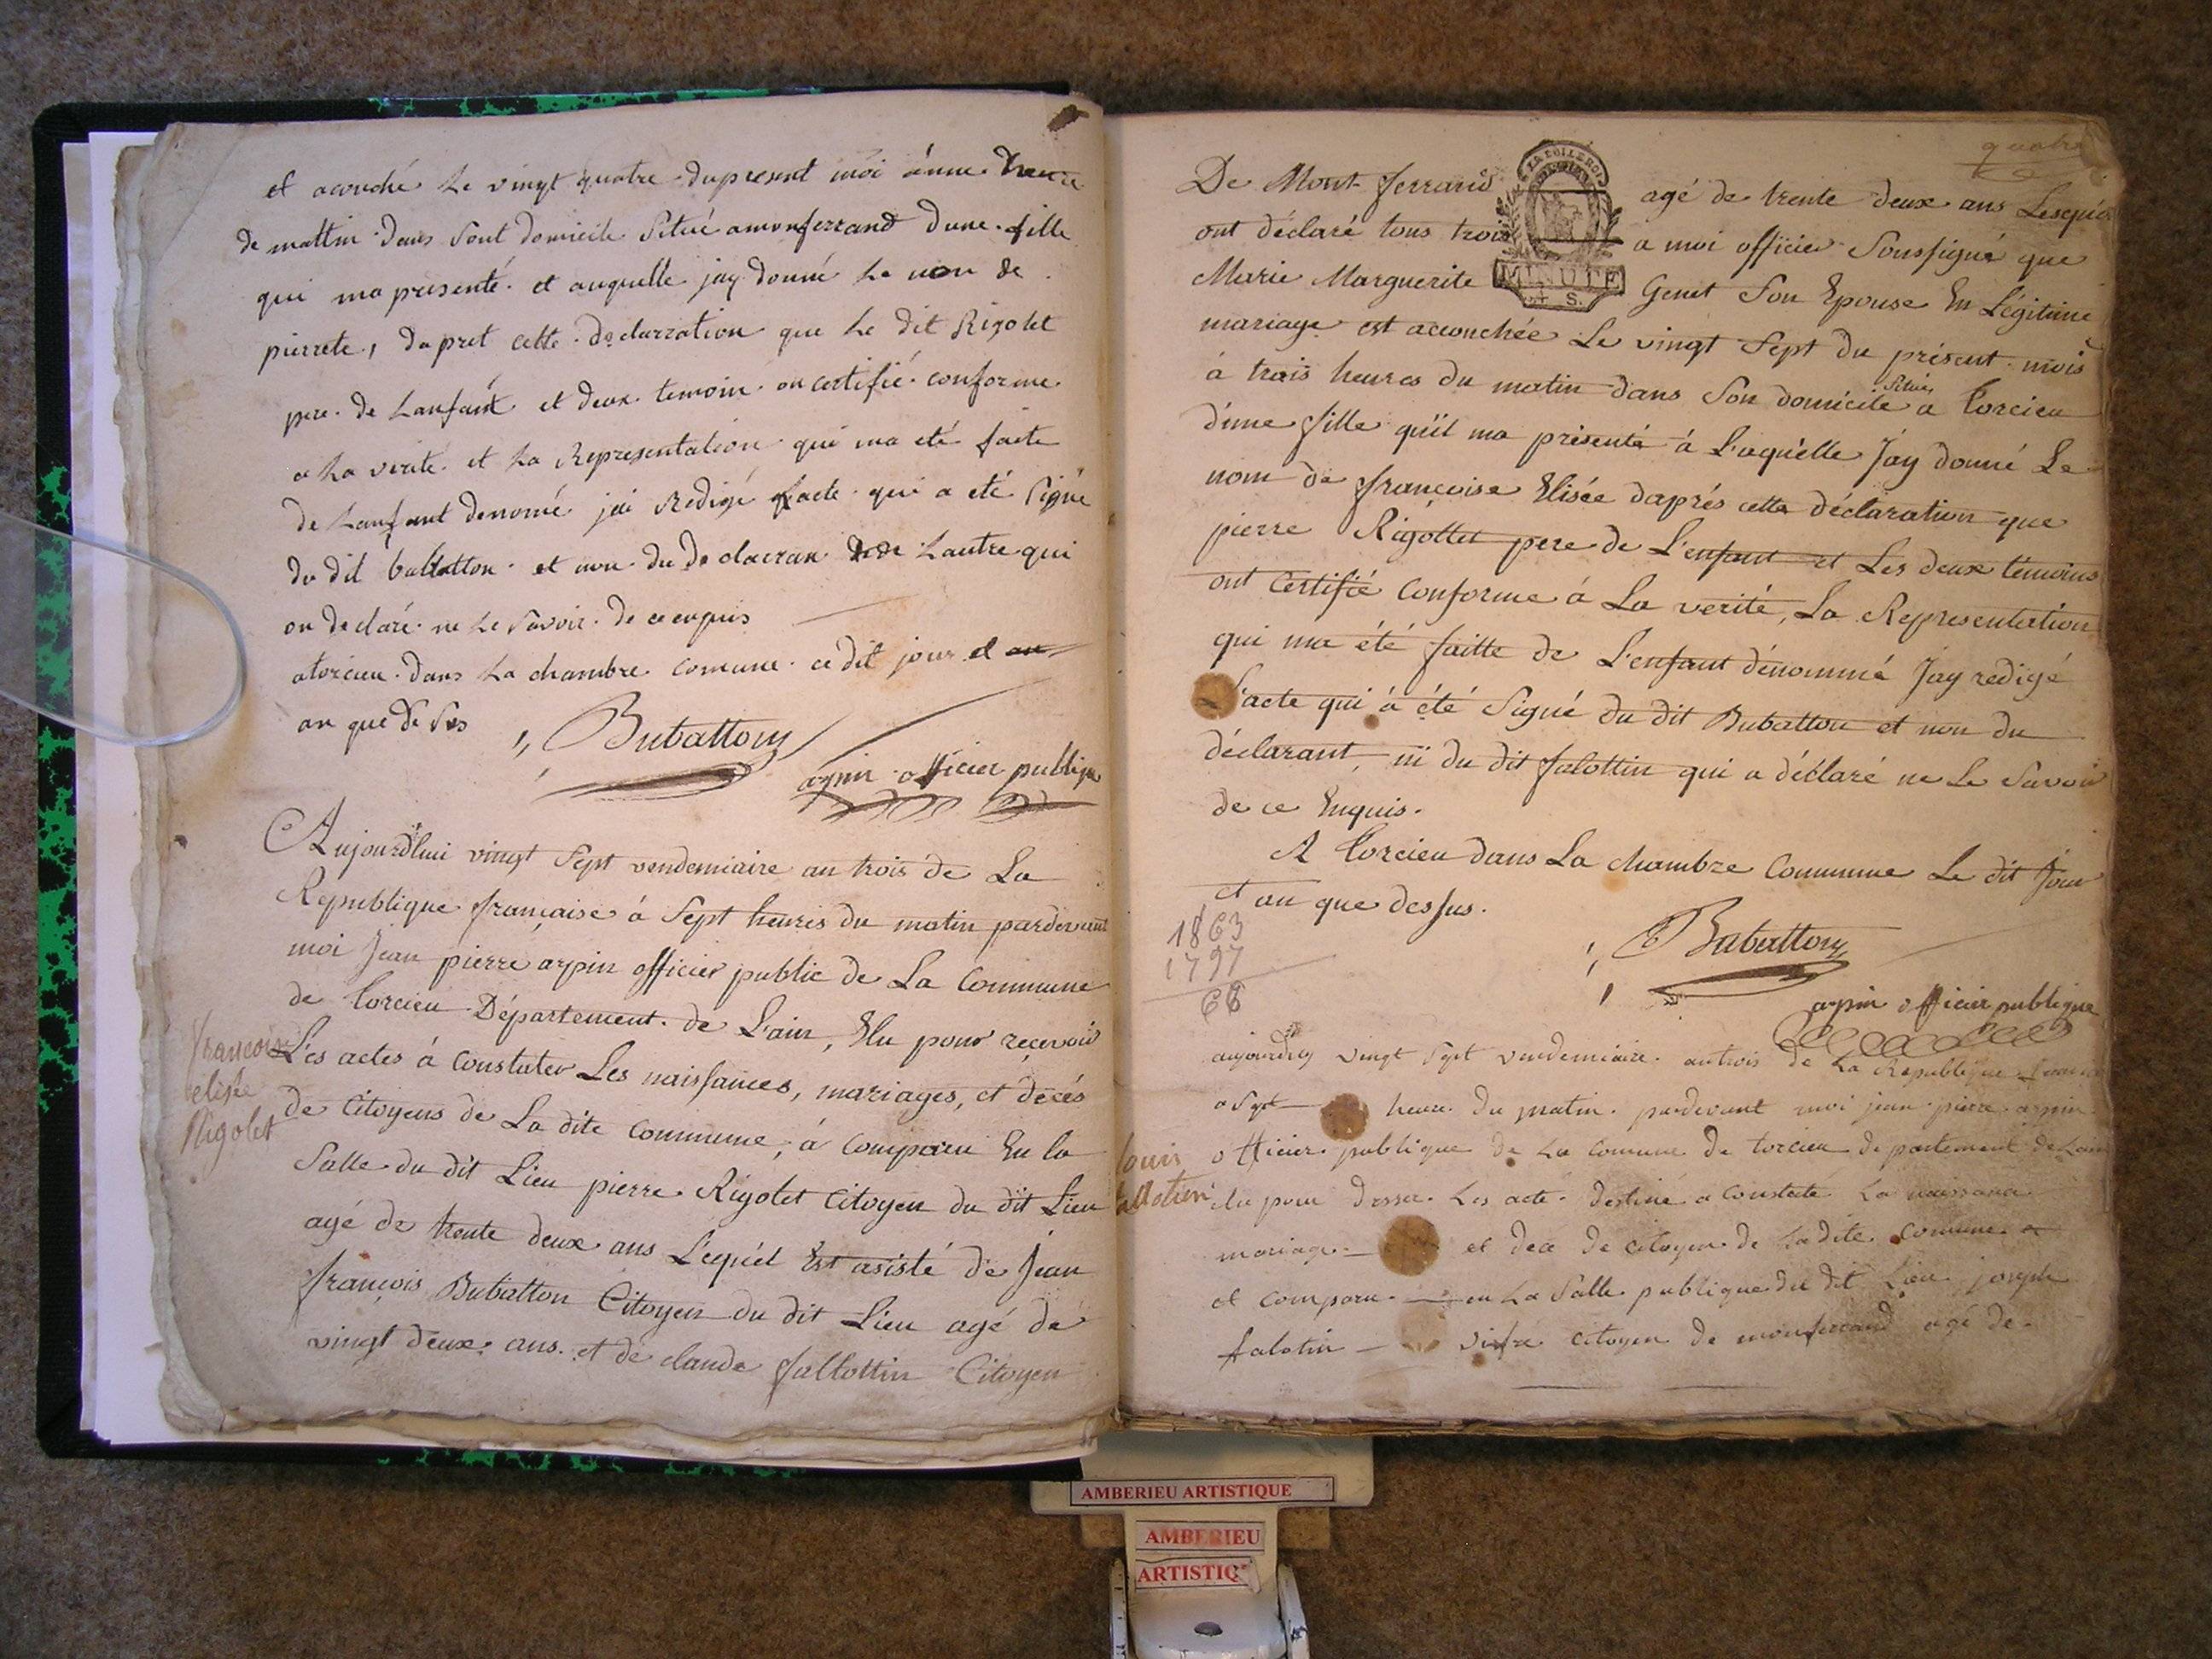 et acouché le vingt quatre dupresent moi a une heure
de mattin dans sont domicile situé amonferrand dune fille
qui ma presenté et auquelle jay donné le nom de
pierrete, dapret cette declarration que le dit Rigolet
pere de lanfant et deux temoin on certifié conforme
a la verité et la Representation qui ma eté faite
de lanfant denomé jai Redigé lacte qui a eté signé
du dit bubatton et non du de claeran de lautre qui
on declaré ne le savoir de ce enquis
atorcieu dans la chambre comune ce dit jour et an
an que de sus
Bubatton
arpin officier publique
Aujourd'hui vingt sept vendemiaire an trois de La
Republique française à sept heures du matin pardevant
moi Jean pierre arpin officier public de La Commune
de torcieu Département de L'ain, Elu pour recevoir
Les actes à constater Les naissances, mariages, et décés
de Citoyens de La dite Commune, à comparu En la
salle du dit Lieu pierre Rigolet Citoyen du dit Lieu
agé de trente deux ans Lequel Est asisté de Jean
françois Bubatton Citoyen du dit Lieu agé de
vingt deux ans et de claude fallottin Citoyen
francoise
elisée
Rigolet
quatre
De Mont ferrand agé de trente deux ans Lesquels
LA LOI LE ROI
ont déclaré tous trois a moi officier soussigné que
MINUTE
S.
Marie Marguerite Genet son Epouse En Légitime
mariage est accouchée Le vingt sept du présent mois
à trois heures du matin dans son domicile situé a torcieu
d'une fille qu'il ma présenté à Laquelle Jay donné Le
nom de françoise Elisée daprés cette déclaration que
pierre Rigollet pere de L'enfant et Les deux témoins
ont certifié conforme à La verité, La Representation
qui ma été faitte de L'enfant dénommé Jay redigé
L'acte qui à été signé du dit Bubatton et non du
déclarant, ni du dit falottin qui a déclaré ne Le savoir
de ce Enquis.
A torcieu dans La chambre Commune Le dit Jour
et an que dessus.
1863
1797
66
Bubatton
arpin officier publique
aujourdhy vingt sept vendemiaire antrois de La Republique
a sept heure du matin pardevant moi jean pierre arpin
officier publique de La comune de torcieu departement de Lain
elu pour dresser Les acte destiné a constate La naissance
mariage et dece de citoyen de Ladite comune a
et comparu en La salle publique du dit Lieu joseph
falotin citoyen de monferrand agé de
louis
fallotin
AMBERIEU ARTISTIQUE
AMBERIEU
ARTISTIQ